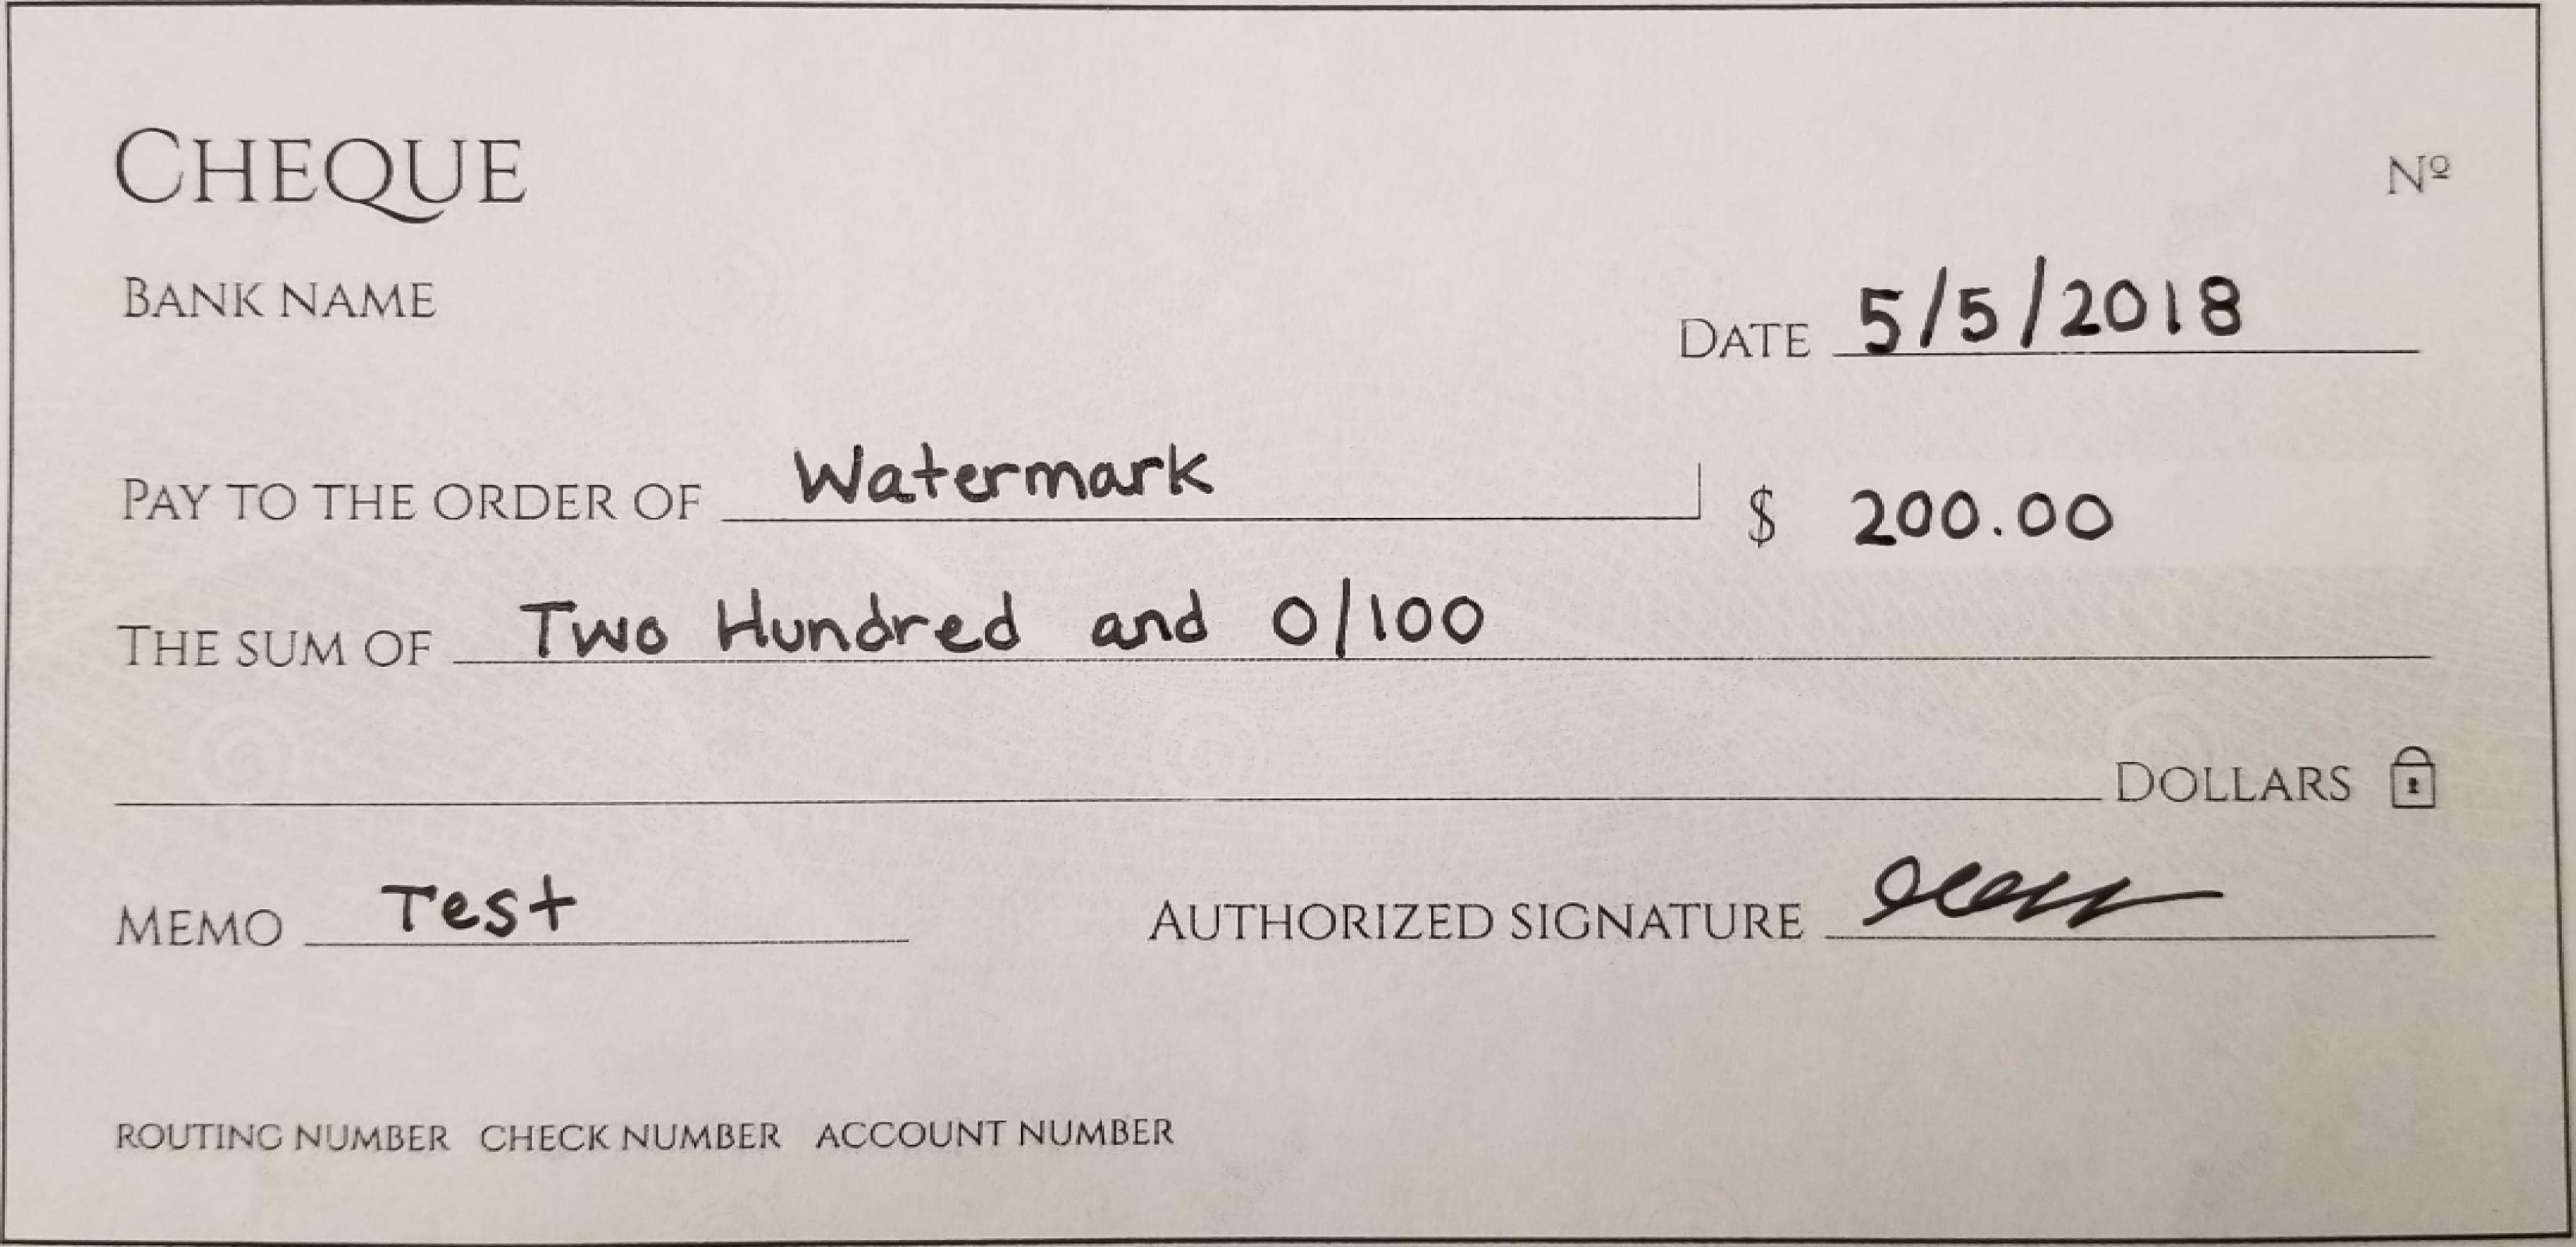 CHEQUE
Nº
BANK NAME
DATE 5/5/2018
PAY TO THE ORDER OF Watermark $ 200.00
THE SUM OF Two Hundred and 0/100
DOLLARS
MEMO Test AUTHORIZED SIGNATURE
ROUTING NUMBER CHECK NUMBER ACCOUNT NUMBER